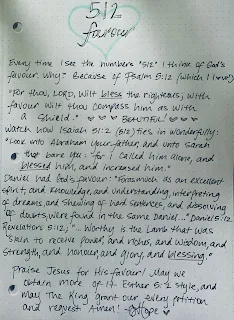 512
favour
Every time I see the numbers "512" I think of God's
favour. why? Because of Psalm 5:12 (which I love!)
"For thou, LORD, wilt bless the righteous; with
favour wilt thou compass him as with
a shield." BEAUTIFUL!
watch how Isaiah 51:2 (512) ties in wonderfully:
"Look unto Abraham your father, and unto Sarah
that bare you: for I called him alone, and
blessed him, and increased him."
Daniel had God's favour! "Forasmuch as an excellent
spirit, and knowledge, and understanding, interpreting
of dreams, and shewing of hard sentences, and dissolving
of doubts, were found in the same Daniel..." Daniel 5:12
Revelations 5:12; "... Worthy is the Lamb that was
slain to receive power, and riches, and wisdom, and
strength, and honour, and glory, and blessing."
Praise Jesus for His favour! May we
obtain more of it. Esther 5:2 style, and
may The King grant our every petition
and request. Amen! Hope